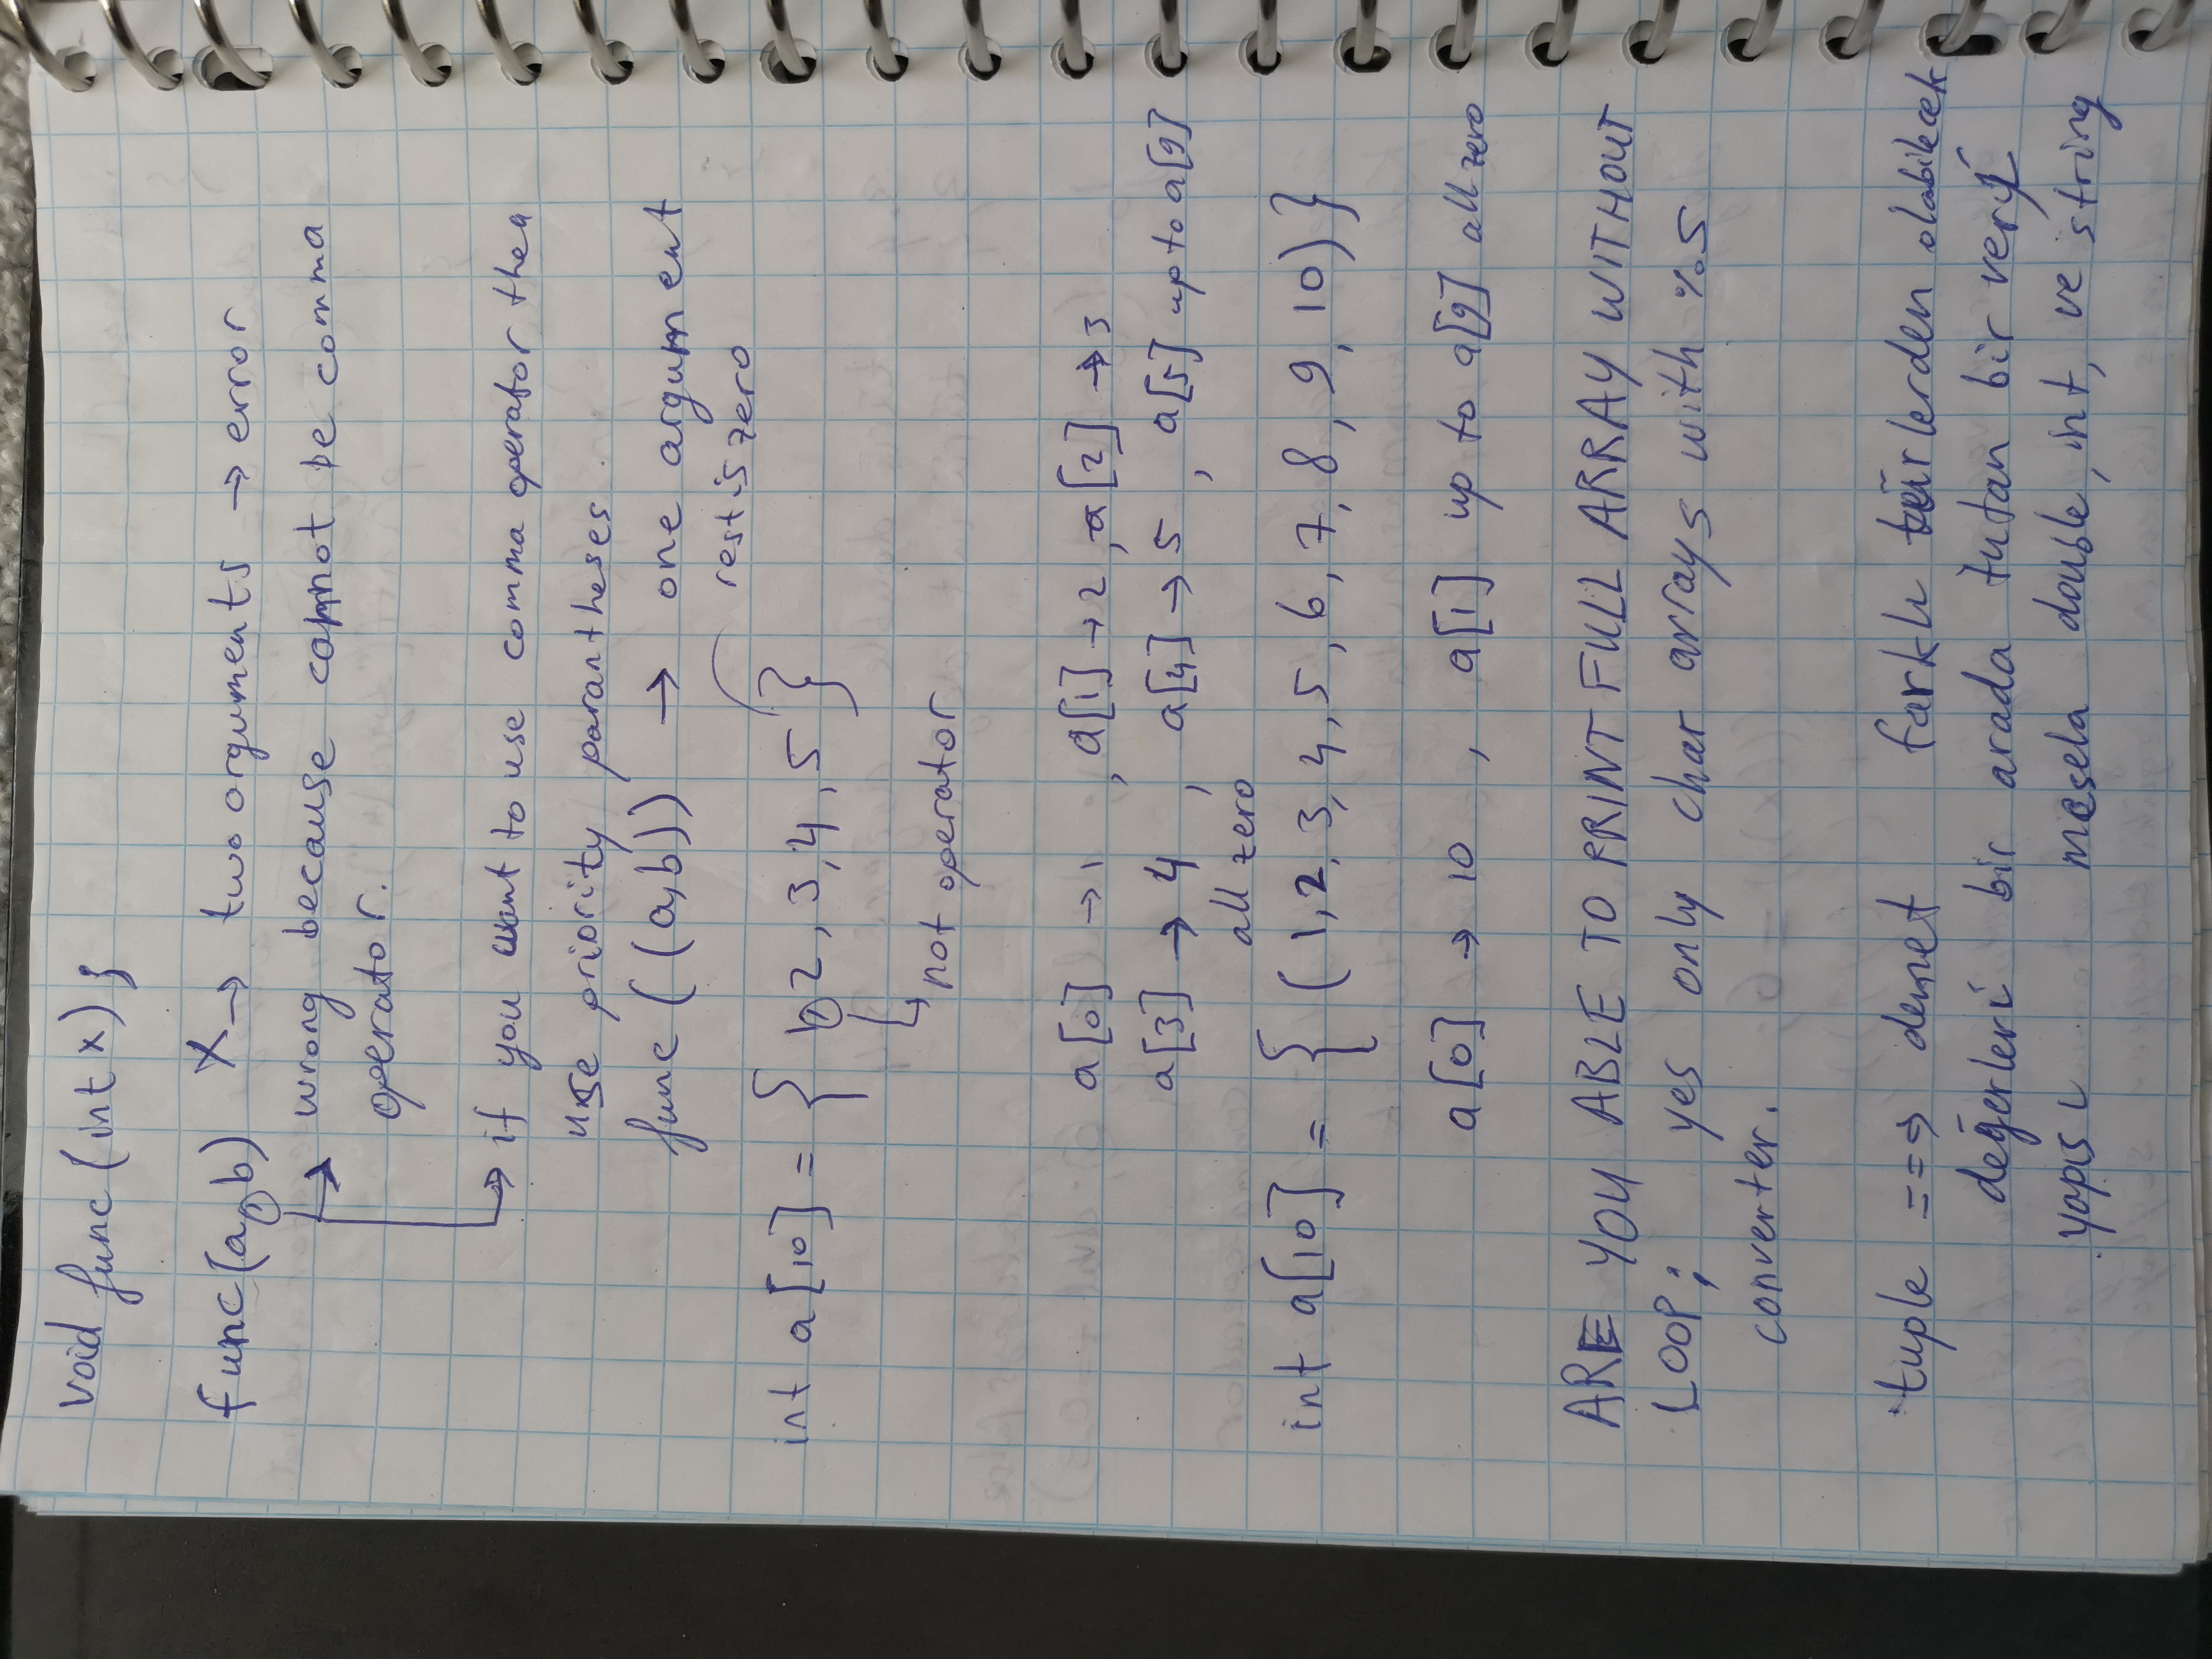 void func(int x);
func(a, b) X → two arguments → error
→ wrong because cannot be comma
operator.
→ if you want to use comma operator then
use priority parantheses.
func ((a,b)) → one argument
rest is zero
int a[10] = { 1, 2, 3, 4, 5 }
not operator
a[0] → 1 , a[1] → 2 , a[2] → 3
a[3] → 4 , a[4] → 5 , a[5] up to a[9]
all zero
int a[10] = { ( 1, 2, 3, 4, 5, 6, 7, 8, 9, 10) }
a[0] → 10 , a[1] up to a[9] all zero
ARE YOU ABLE TO PRINT FULL ARRAY WITHOUT
LOOP; yes only char arrays with %s
converter.
tuple ==⇒ demet farklı türlerden olabilecek
değerleri bir arada tutan bir veri
yapısı mesela double, int, ve string